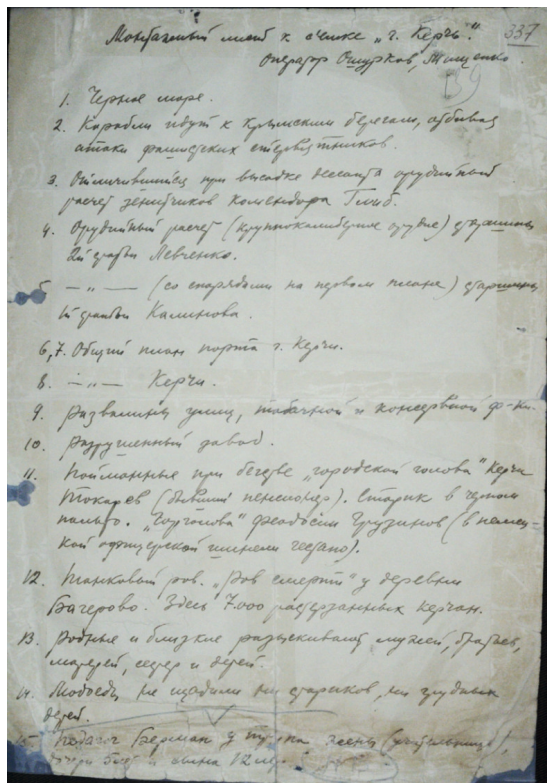 337
Монтажный лист к съемке „г. Керчь".
Оператор Ошурков, Тищенко.
1. Черное море.
2. Корабли идут к крымским берегам, отбивая
атаки фашистских стервятников.
3. Отличившийся при высадке десанта орудийный
расчет зенитчиков комендора Глыб.
4. Орудийный расчет (крупнокалиберное орудие) старшины
2й статьи Левченко.
5 —„— (со снарядами на первом плане) старшины
1й статьи Калинова.
6,7. Общий план порта г. Керчи.
8. —„— Керчи.
9. Развалины улиц, табачной и консервной ф-ки.
10. Разрушенный завод.
11. Пойманные при бегстве „городской голова" Керчи
Токарев (бывший пенсионер). Старик в черном
пальто. „Горголова" Феодосии Грузинов (в немец-
кой офицерской шинели гестапо).
12. Танковый ров. „Ров смерти" у деревни
Багерово. Здесь 7.000 растерзанных керчан.
13. Родные и близкие разыскивают мужей, братьев,
матерей, сестер и детей.
14. Людоеды не щадили ни стариков, ни грудных
детей.
15 Педагог Берман у трупа жены (учительницы),
дочери 5 лет и сына 12 лет.